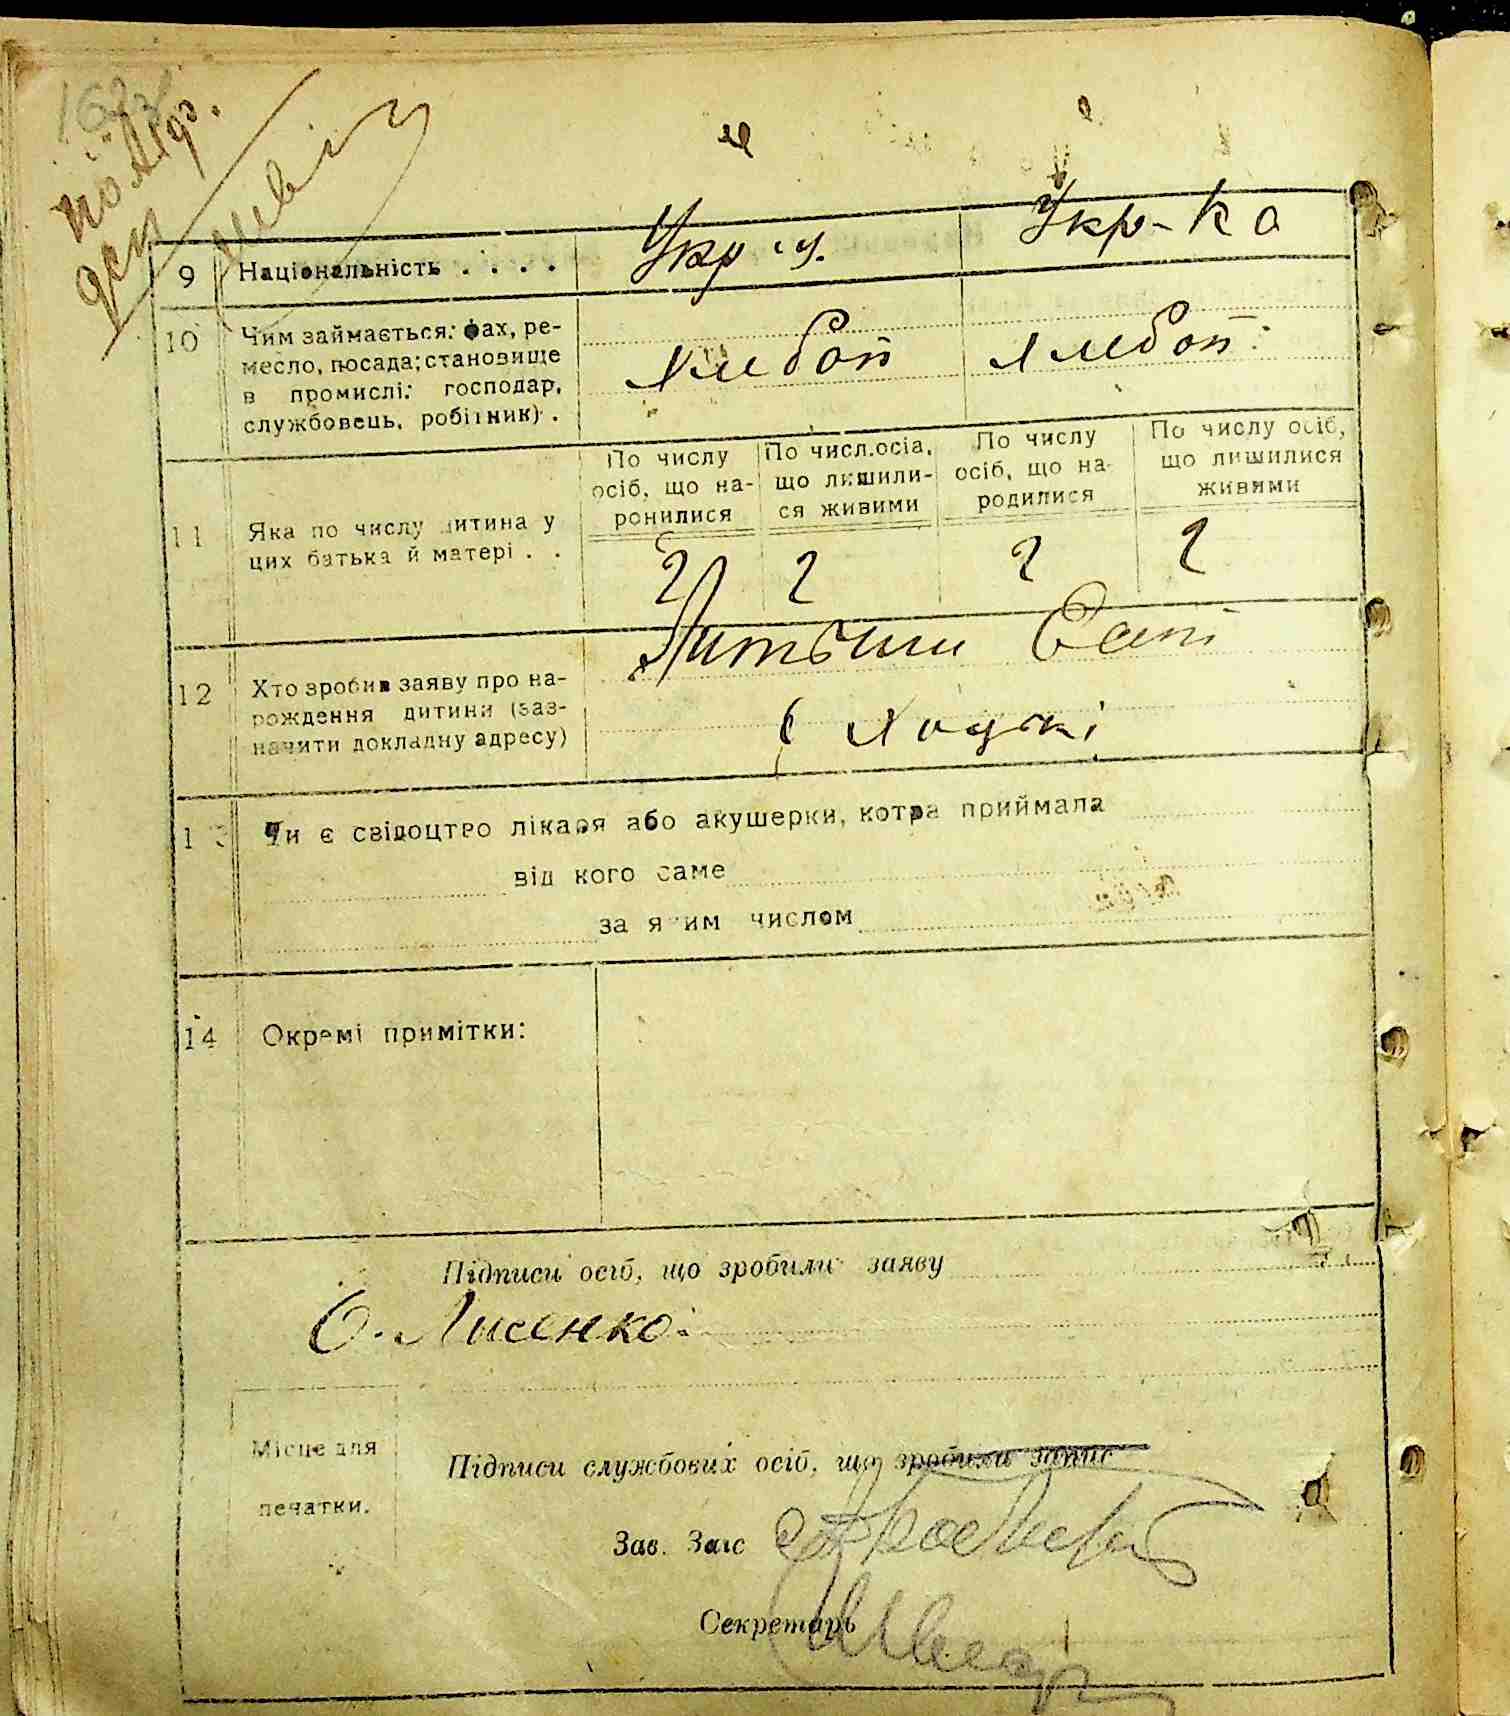 9 Національність . . . . Укр-ц. Укр-ка
10 Чим займається: фах, ре-
месло, посада; становище
в промислі: господар,
службовець, робітник) .
хлібоп хлібоп:
По числу По числ.осіа, По числу По числу осіб,
осіб, що на- що лишили- осіб, що на- що лишилися
ронилися ся живими родилися живими
11 Яка по числу дитина у
цих батька й матері . .
2 2 2 2
12 Хто зробив заяву про на-
рождення дитини (заз-
начити докладну адресу)
13 Чи є свідоцтво лікаря або акушерки, котра приймала
від кого саме
за яким числом
14 Окремі примітки:
Підписи осіб, що зробили заяву
О. Лисенко
Місце для
печатки.
Підписи службових осіб, що зробили запис
Зав. Загс
Секретарь